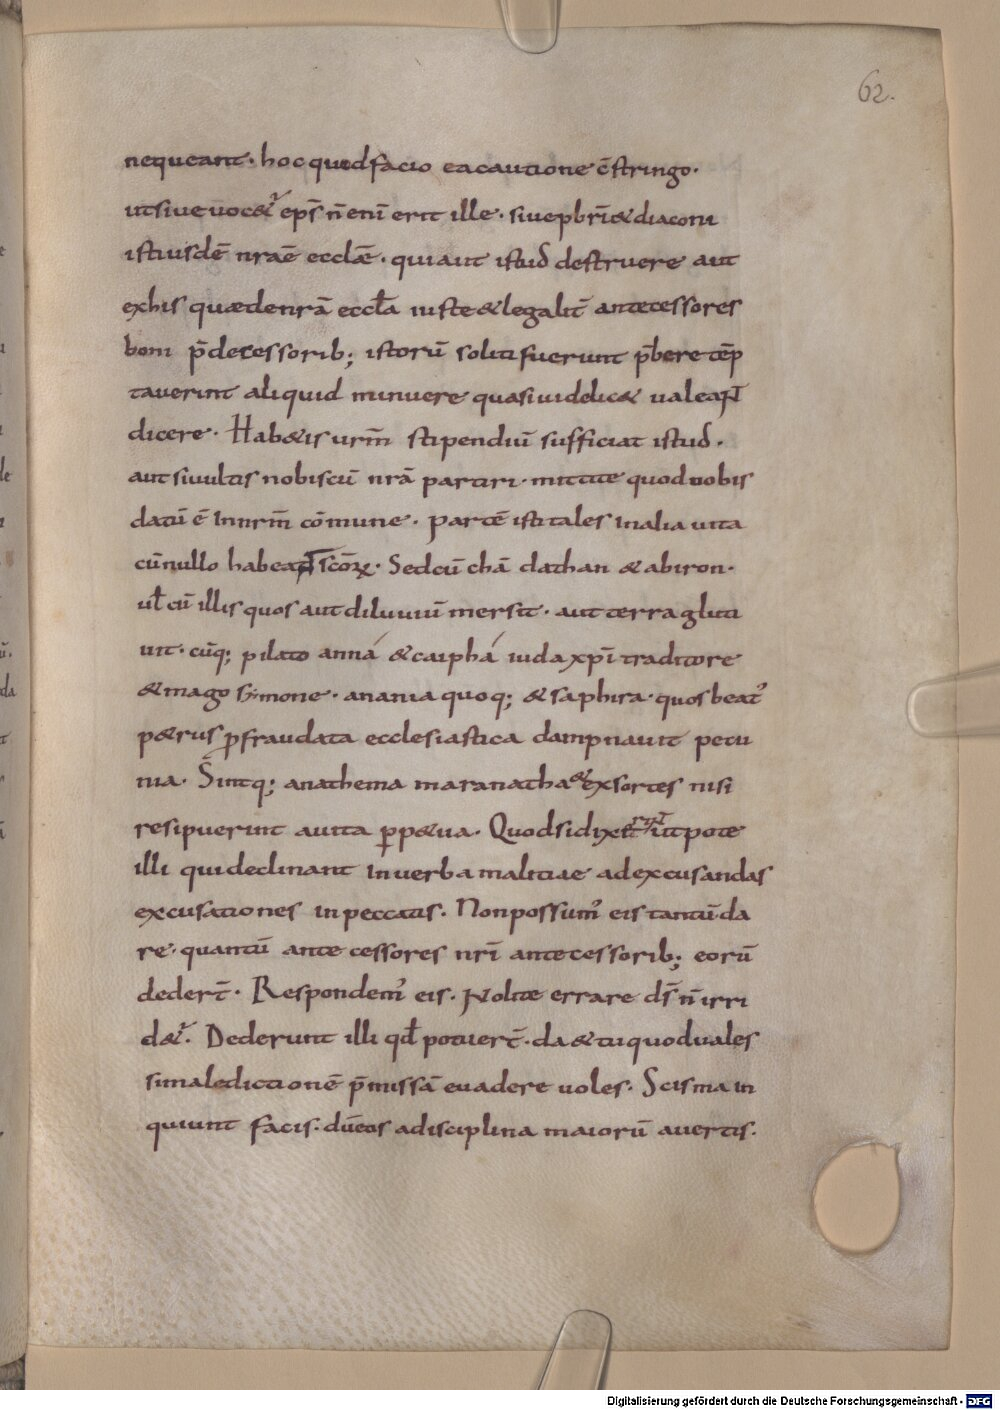 62.
nequeant· hoc quod facio ea cautione c̄stringo·
ut siue uoc&ʳ ep̄s n̄ enī erit ille· siue pbr̄i & diaconi
istiusdē nr̄ae ecclae̅· qui aut istud destruere aut
ex his quae de nr̄a eccl̄a iuste & legalit̄ antecessores
boni p̄decessorib; istorū soliti fuerunt p̄bere tēp
tauerint aliquid minuere quasi uidelic& ualeant
dicere· Hab&is ur̄m stipendiū sufficiat istud·
aut si uultis nobiscū nr̄a partiri· mittite quod uobis
datū ē In nr̄m cōmune· partē isti tales in alia uita
cū nullo habeant sc̄oꝝ· Sed cū chā dathan & abiron·
ul̄ cū illis quos aut diluuiū mersit· aut terra gluti
uit· cūq; pilato anná & caiphá iuda xp̄i traditore
& mago simone· anania quoq; & saphira· quos beat'
p&rus p̄ fraudata ecclesiastica dampnauit pecu
nia· Sintq; anathema maranatha & exsortes nisi
resipuerint a uita ꝑp&ua· Quod si dixerint ut pote
illi qui declinant in uerba malitiae ad excusandas
excusationes in peccatis· Non possum' eis tantū da
re· quantū ante cessores nr̄i antecessorib; eorū
dedert̄· Respondem' eis· Nolite errare ds̄ n̄ irri
d&ʳ· Dederunt illi qd̄ potuert̄· da & tu quod uales
si maledictionē p̄missā euadere uoles· Scisma in
quiunt facis· dū eos a disciplina maiorū auertis·
Digitalisierung gefördert durch die Deutsche Forschungsgemeinschaft - DFG